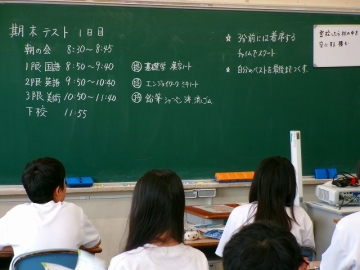 期末テスト 1日目
朝の会 8:30〜8:45
1限 国語 8:50〜9:40
2限 英語 9:50〜10:40
3限 美術 10:50〜11:40
下校 11:55
提 基礎学 漢字ノート
提 エンジョイワーク ミニノート
持 鉛筆 シャーペン 消しゴム
★ 3分前には着席する
チャイムでスタート
★ 自分のベストを最後までつくす。